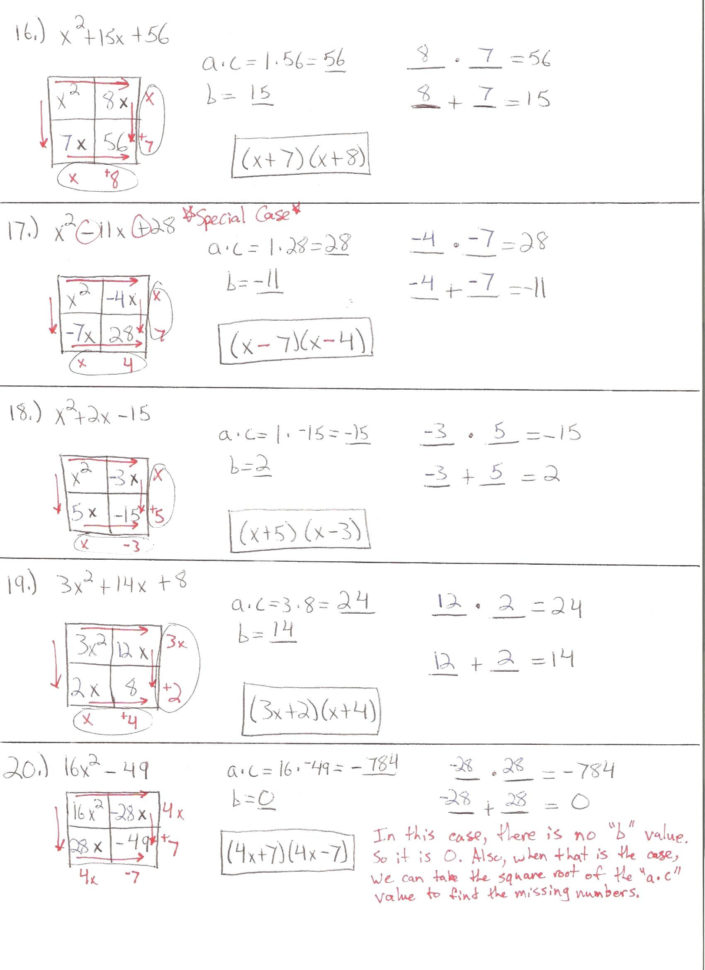 16.) x²+15x+56
a·c = 1·56= 56
8 · 7 = 56
b = 15
8 + 7 = 15
x² 8x x
7x 56 +7
x +8
(x+7)(x+8)
17.) x²-11x+28 *Special Case*
a·c = 1·28=28
-4 · -7 = 28
b=-11
-4 + -7 =-11
x² -4x x
-7x 28 7
x 4
(x-7)(x-4)
18.) x²+2x-15
a·c= 1·-15=-15
-3 · 5 =-15
b=2
-3 + 5 = 2
x² -3x x
5x -15 +5
x -3
(x+5)(x-3)
19.) 3x²+14x+8
a·c=3·8= 24
12 · 2 = 24
b=14
12 + 2 = 14
3x² 12x 3x
2x 8 +2
x +4
(3x+2)(x+4)
20.) 16x²-49
a·c= 16·-49= -784
-28 · 28 = -784
b=0
-28 + 28 = 0
16x² -28x 4x
28x -49 +7
4x -7
(4x+7)(4x-7)
In this case, there is no "b" value.
So it is 0. Also, when that is the case,
we can take the square root of the "a·c"
value to find the missing numbers.